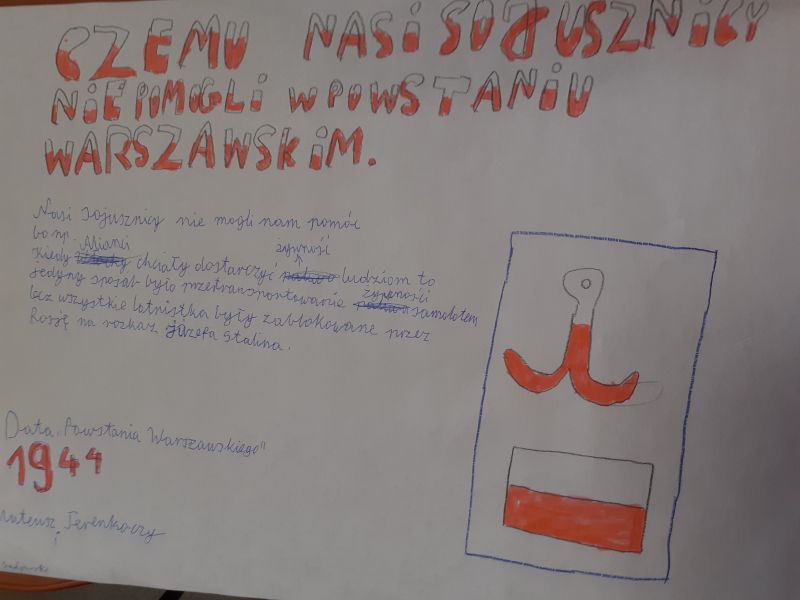 CZEMU NASI SOJUSZNICY
NIE POMOGLI W POWSTANIU
WARSZAWSKIM.
Nasi sojusznicy nie mogli nam pomóc
bo np. Alianci
żywność
Kiedy chciały dostarczyć ludziom to
żywności
Jedyny sposób było przetransportowanie samolotem
lecz wszystkie lotnistka były zablokowane przez
Rosję na rozkaz józefa Stalina.
Data „Powstania Warszawskiego"
1944
Mateusz